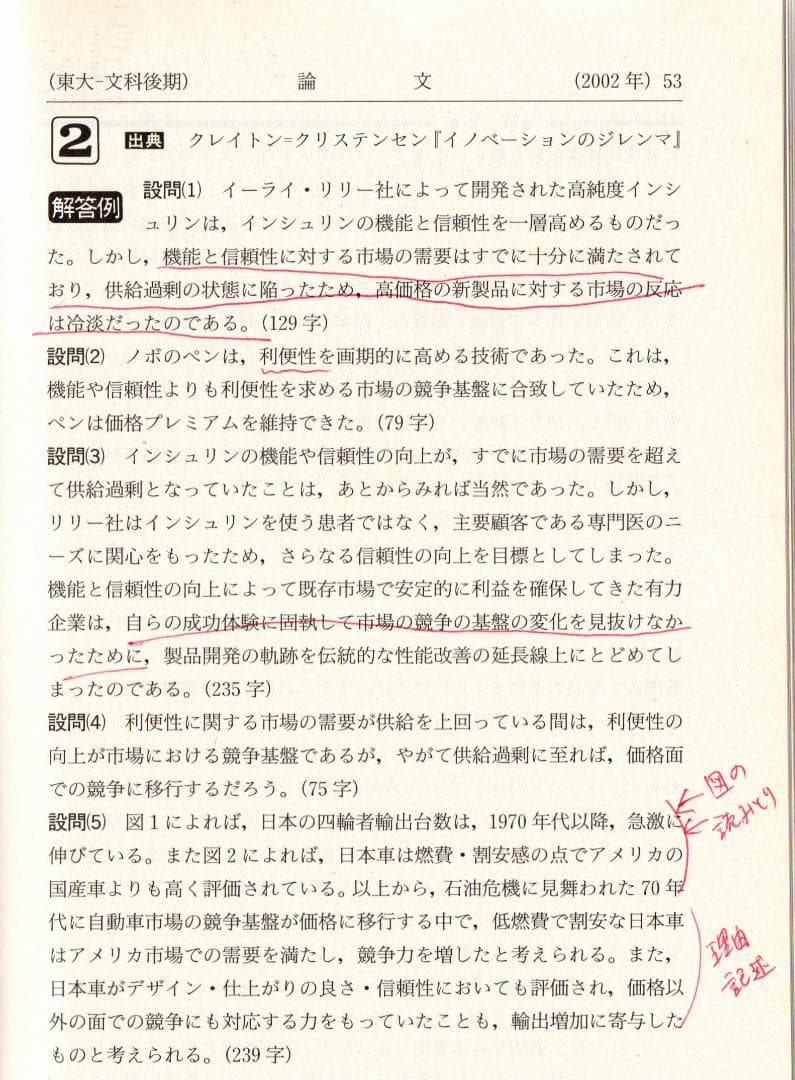 (東大-文科後期) 論文 (2002年) 53
2 出典 クレイトン=クリステンセン『イノベーションのジレンマ』
解答例 設問(1) イーライ・リリー社によって開発された高純度インシ
ュリンは，インシュリンの機能と信頼性を一層高めるものだっ
た。しかし，機能と信頼性に対する市場の需要はすでに十分に満たされて
おり，供給過剰の状態に陥ったため，高価格の新製品に対する市場の反応
は冷淡だったのである。(129字)
設問(2) ノボのペンは，利便性を画期的に高める技術であった。これは，
機能や信頼性よりも利便性を求める市場の競争基盤に合致していたため，
ペンは価格プレミアムを維持できた。(79字)
設問(3) インシュリンの機能や信頼性の向上が，すでに市場の需要を超え
て供給過剰となっていたことは，あとからみれば当然であった。しかし，
リリー社はインシュリンを使う患者ではなく，主要顧客である専門医のニ
ーズに関心をもったため，さらなる信頼性の向上を目標としてしまった。
機能と信頼性の向上によって既存市場で安定的に利益を確保してきた有力
企業は，自らの成功体験に固執して市場の競争の基盤の変化を見抜けなか
ったために，製品開発の軌跡を伝統的な性能改善の延長線上にとどめてし
まったのである。(235字)
設問(4) 利便性に関する市場の需要が供給を上回っている間は，利便性の
向上が市場における競争基盤であるが，やがて供給過剰に至れば，価格面
での競争に移行するだろう。(75字)
設問(5) 図1によれば，日本の四輪者輸出台数は，1970年代以降，急激に
伸びている。また図2によれば，日本車は燃費・割安感の点でアメリカの
国産車よりも高く評価されている。以上から，石油危機に見舞われた70年
代に自動車市場の競争基盤が価格に移行する中で，低燃費で割安な日本車
はアメリカ市場での需要を満たし，競争力を増したと考えられる。また，
日本車がデザイン・仕上がりの良さ・信頼性においても評価され，価格以
外の面での競争にも対応する力をもっていたことも，輸出増加に寄与した
ものと考えられる。(239字)
図の
読みとり
理由
記述